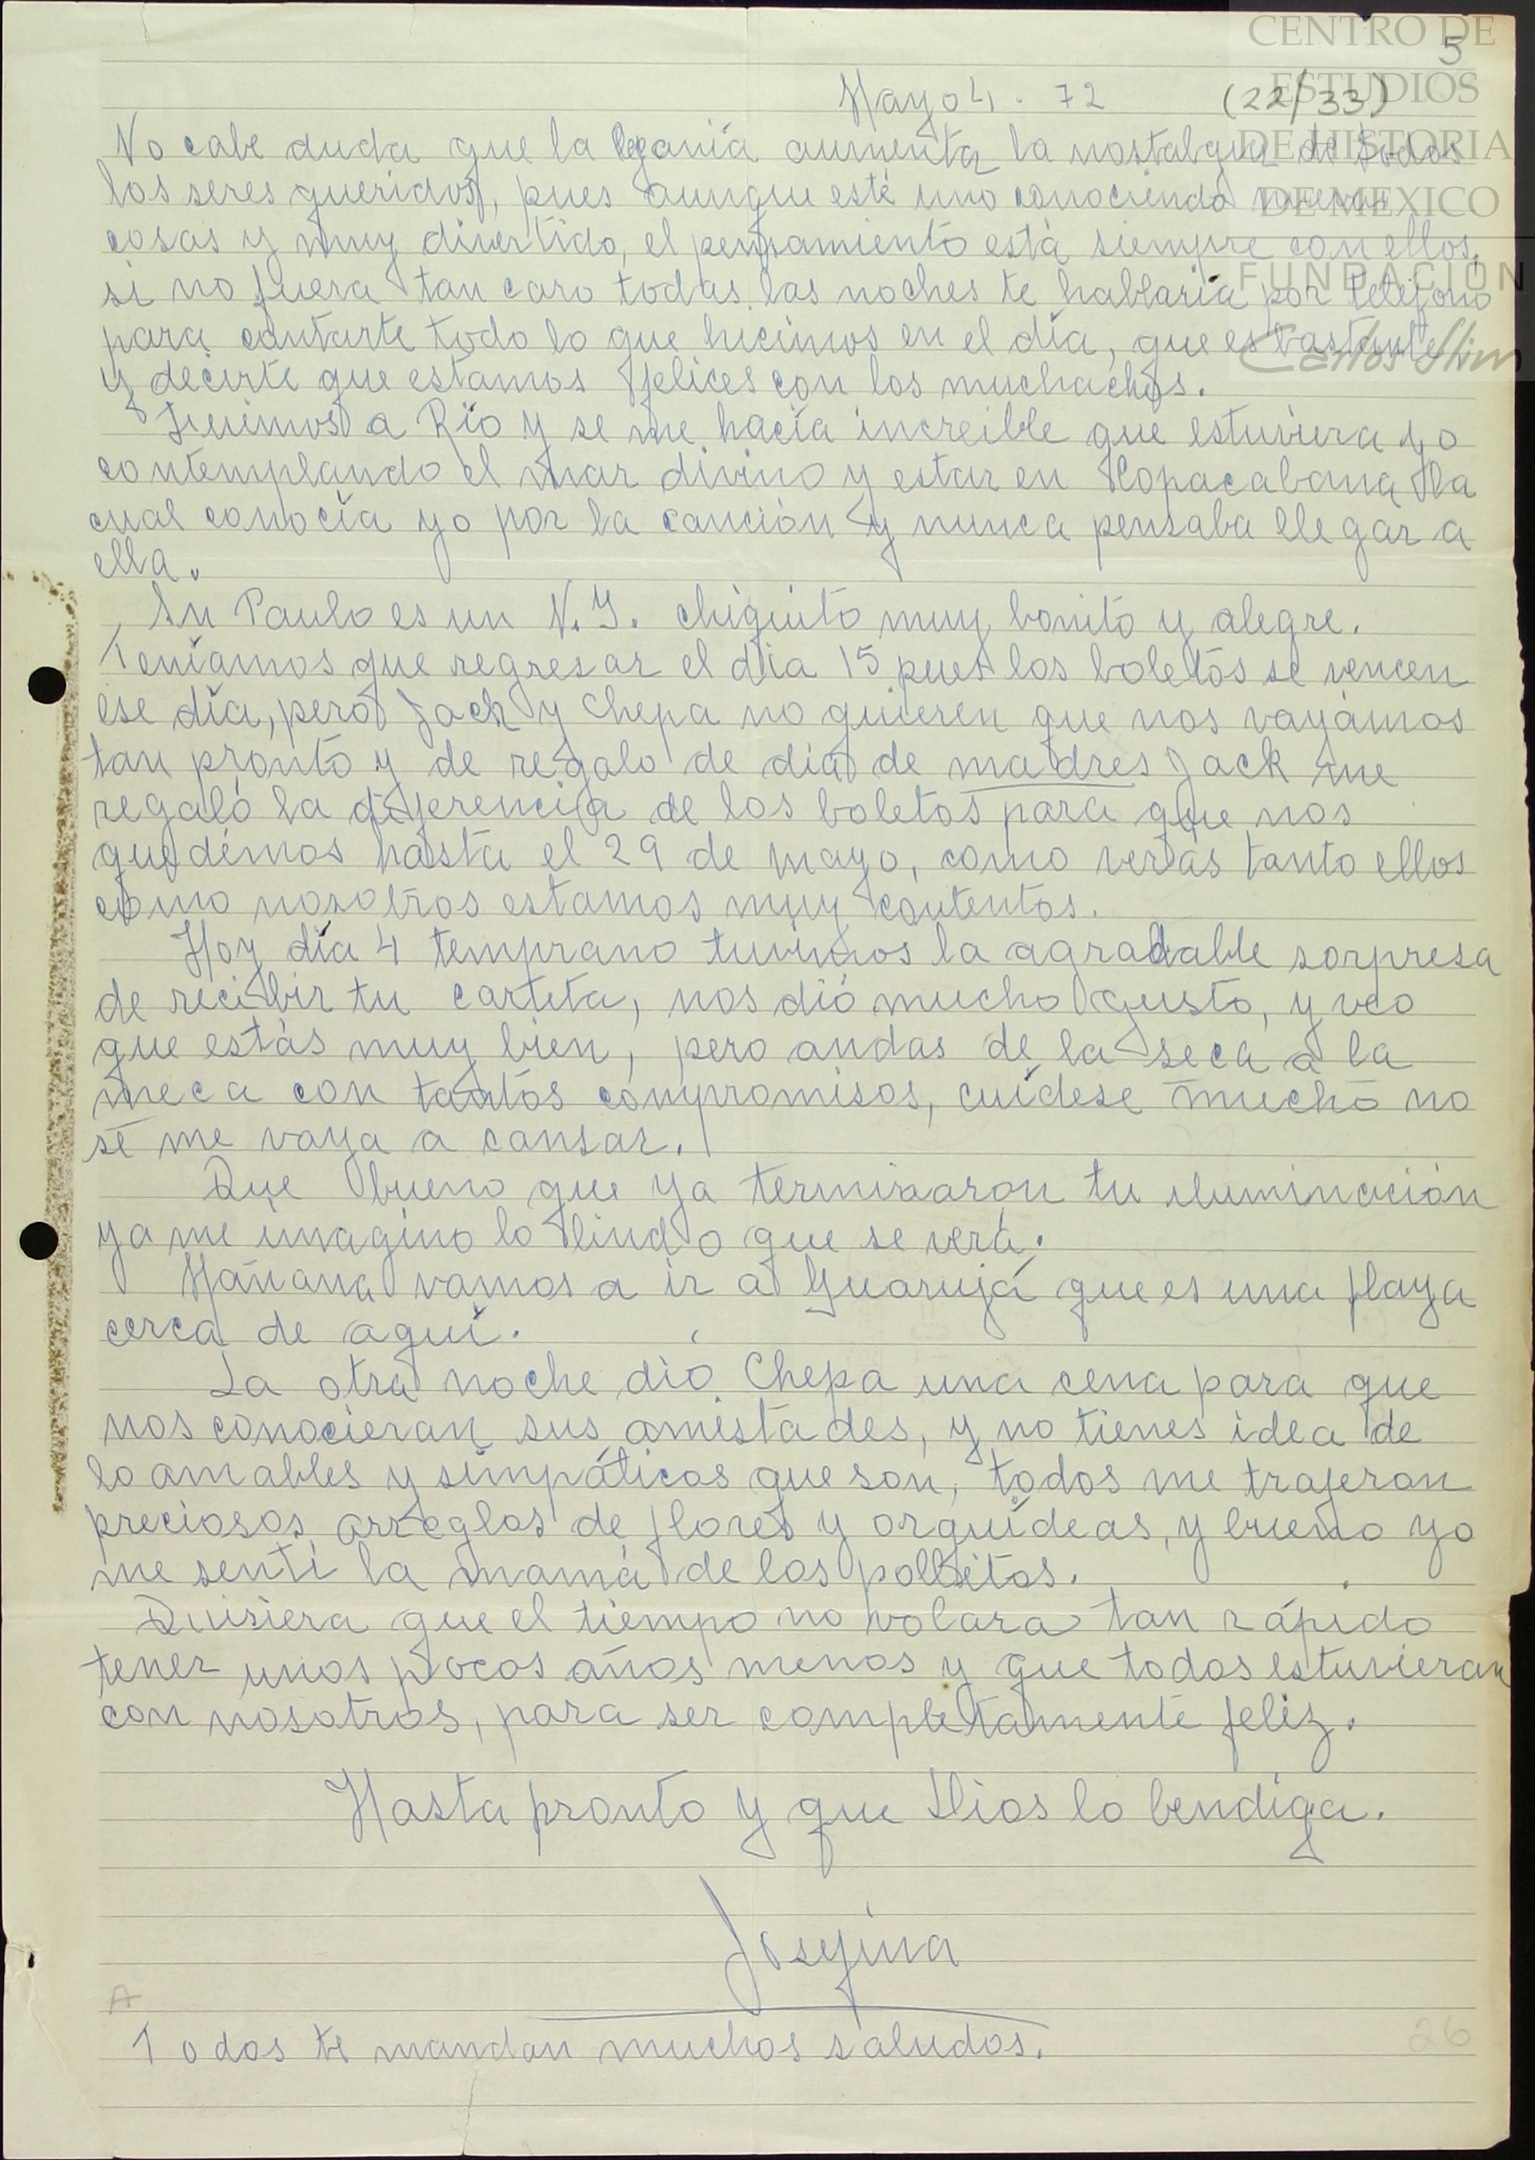 CENTRO DE
ESTUDIOS
DE HISTORIA
DE MEXICO
FUNDACIÓN
Carlos Slim
5
Mayo 4 - 72 (22/33)
No cabe duda que la leganía aumenta la nostalgia de todos
los seres queridos, pues aunque esté uno conociendo nuevas
cosas y muy divertido, el pensamiento está siempre con ellos,
si no fuera tan caro todas las noches te hablaría por teléfono
para contarte todo lo que hicimos en el día, que es bastante
y decirte que estamos felices con los muchachos.
Fuimos a Río y se me hacía increible que estuviera yo
contemplando el mar divino y estar en Copacabana la
cual conocía yo por la canción y nunca pensaba llegar a
ella.
Sn Paulo es un N.Y. chiquito muy bonito y alegre.
Teníamos que regresar el día 15 pues los boletos se vencen
ese día, pero Jack y Chepa no quieren que nos vayámos
tan pronto y de regalo de día de madres Jack me
regaló la diferencia de los boletos para que nos
quedémos hasta el 29 de mayo, como verás tanto ellos
como nosotros estamos muy contentos.
Hoy día 4 temprano tuvimos la agradable sorpresa
de recibir tu carteta, nos dió mucho gusto, y veo
que estás muy bien, pero andas de la seca a la
meca con tantos compromisos, cuídese mucho no
se me vaya a cansar.
Que bueno que ya terminaron tu iluminación
ya me imagino lo lindo que se verá.
Mañana vamos a ir a Guarujá que es una playa
cerca de aquí.
La otra noche dió Chepa una cena para que
nos conocieran sus amistades, y no tienes idea de
lo amables y simpáticos que son, todos me trajeron
preciosos arreglos de flores y orquídeas, y bueno yo
me sentí la mamá de los pollitos.
Quisiera que el tiempo no volara tan rápido
tener unos pocos años menos y que todos estuvieran
con nosotros, para ser completamente feliz.
Hasta pronto y que Dios lo bendiga.
Josefina
A
Todos te mandan muchos saludos.
26